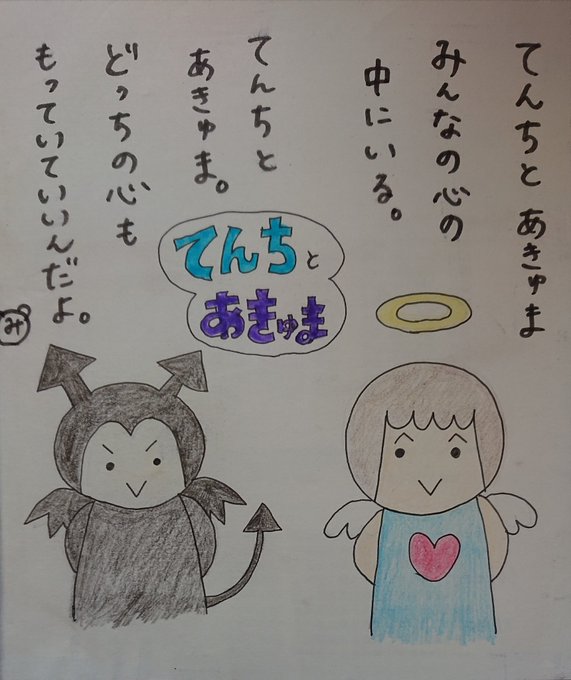 てんちと あきゅま
みんなの心の
中にいる。
てんちと
あきゅま。
どっちの心も
もっていていいんだよ。
み
てんちと
あきゅま